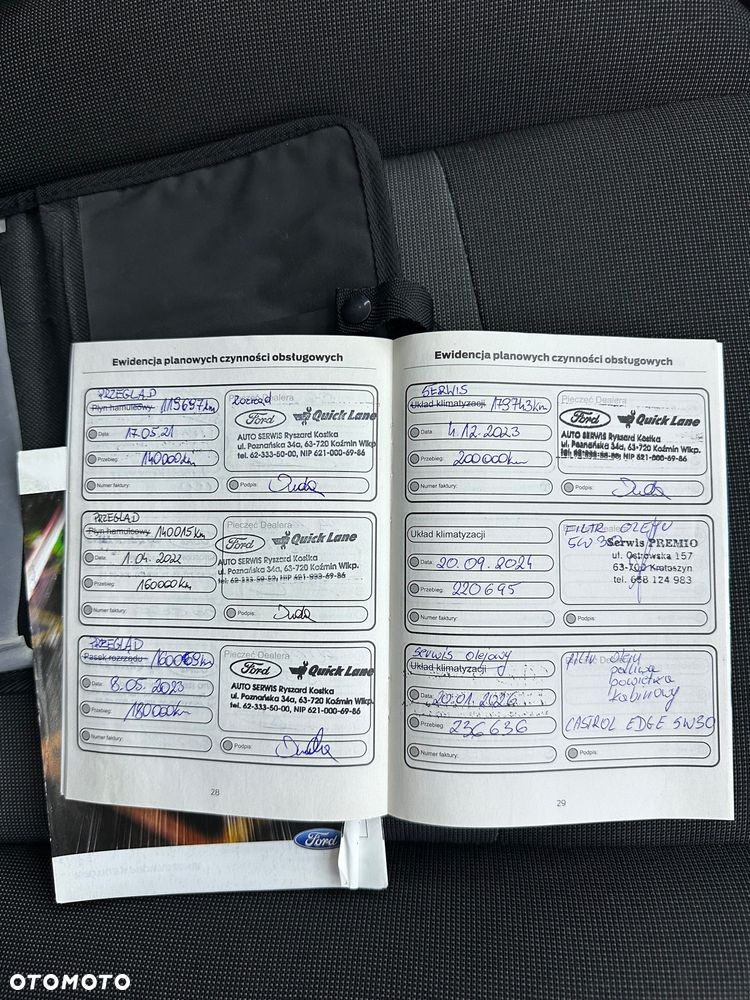 Ewidencja planowych czynności obsługowych
PRZEGLĄD
Płyn hamulcowy 119697km
Data: 17.05.21
Przebieg: 140000km
Numer faktury:
rozrząd
Ford Quick Lane
AUTO SERWIS Ryszard Kostka
ul. Poznańska 34a, 63-720 Koźmin Wlkp.
tel. 62-333-50-00, NIP 621-000-69-86
Podpis:
PRZEGLĄD
Płyn hamulcowy 140015km
Data: 1.04.2022
Przebieg: 160000km
Numer faktury:
Pieczęć Dealera
Ford Quick Lane
AUTO SERWIS Ryszard Kostka
ul. Poznańska 34a, 63-720 Koźmin Wlkp.
Podpis:
PRZEGLĄD
Pasek rozrządu 160069km
Data: 8.05.2023
Przebieg: 180000km
Numer faktury:
Pieczęć Dealera
Ford Quick Lane
AUTO SERWIS Ryszard Kostka
ul. Poznańska 34a, 63-720 Koźmin Wlkp.
tel. 62-333-50-00, NIP 621-000-69-86
Podpis:
28
Ewidencja planowych czynności obsługowych
SERWIS
Układ klimatyzacji 179743km
Data: 4.12.2023
Przebieg: 200000km
Numer faktury:
Pieczęć Dealera
Ford Quick Lane
AUTO SERWIS Ryszard Kostka
ul. Poznańska 34a, 63-720 Koźmin Wlkp.
NIP 621-000-69-86
Podpis:
Układ klimatyzacji
Data: 20.09.2024
Przebieg: 220695
Numer faktury:
FILTR OLEJU
5W30
Serwis PREMIO
ul. Ostrowska 157
63-700 Krotoszyn
tel. 668 124 983
Podpis:
Serwis olejowy
Układ klimatyzacji
Data: 20.01.2026
Przebieg: 236636
Numer faktury:
filtr oleju
paliwa
powietrza
kabinowy
CASTROL EDGE 5W30
Podpis:
29
Ford
OTOMOTO